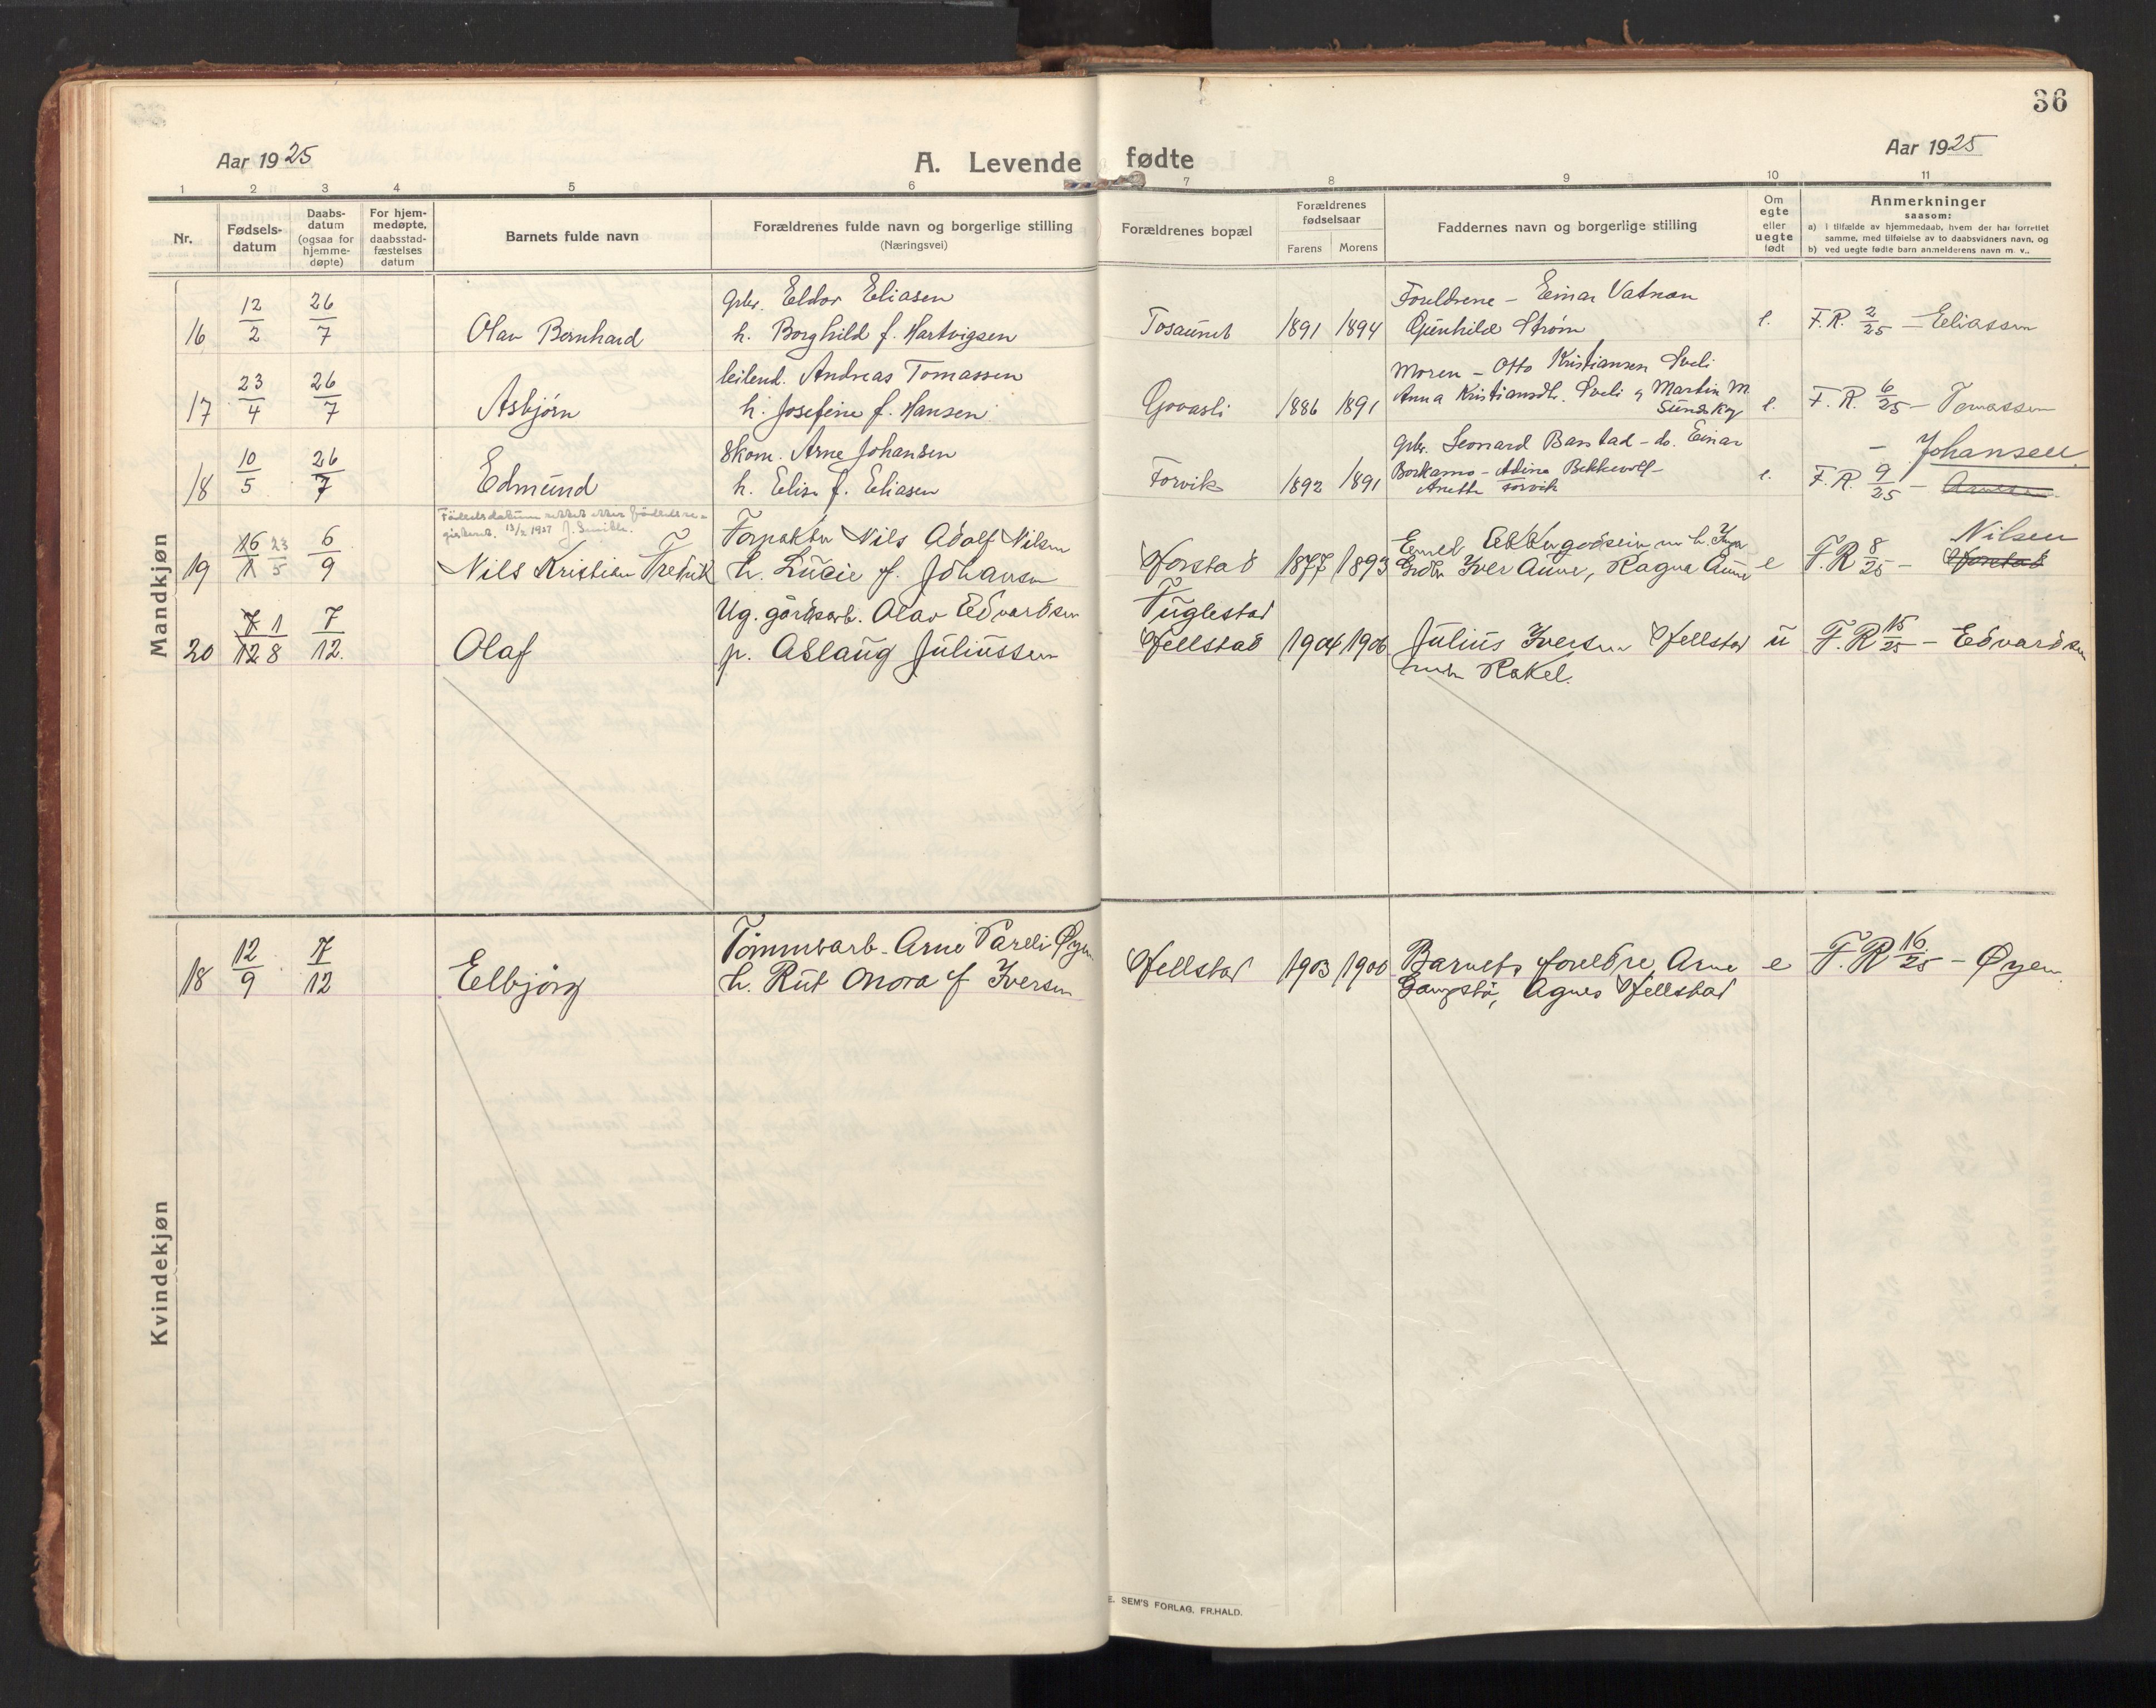 36
Aar 1925
A. Levende fødte
Aar 1925
1 2 3 4 5 6 7 8 9 10 11
Nr.
Fødsels-
datum
Daabs-
datum
(ogsaa for
hjemme-
døpte)
For hjem-
medøpte,
daabsstad-
fæstelses
datum
Barnets fulde navn
Forældrenes fulde navn og borgerlige stilling
(Næringsvei)
Forældrenes bopæl
Forældrenes
fødselsaar
Farens Morens
Faddernes navn og borgerlige stilling
Om
egte
eller
uegte
født
Anmerkninger
saasom:
a) i tilfælde av hjemmedaab, hvem der har forrettet
samme, med tilføielse av to daabsvidners navn, og
b) ved uegte fødte barn anmelderens navn m. v..
Mandkjøn
16 12/2 26/7 Olav Bernhard
Gbr. Eldor Eliasen
h. Borghild f. Hartvigsen
Tosaunet 1891 1894
Foreldrene - Einar Vatnan
Gunhild Strøm
e. F.R. 2/25 - Eliassen
17 23/4 26/7 Asbjørn
leilend. Andreas Tomassen
h. Josefine f. Hansen
Govasli 1886 1891
Moren - Otto Kristiansen Sveli
Anna Kristiansdtr. Sveli og Martin M
e. F.R. 6/25 - Tomassen
18 10/5 26/7 Edmund
Skom. Arne Johansen
h. Elise f. Eliasen
Forvik 1892 1891
Gbr. Leonard Barstad - do. Einar
Borkamo - Adina
Anette Forvik
e. F.R. 9/25 - Johansen
Fødselsdatum rettet efter fødselsre-
gisteret. 13/2 1937
19 16/1 23/5 6/9 Nils Kristian Fredrik
Forpakter Nils Adolf Nilsen
h. Lucie f. Johansen
Horstad 1877 1893
Iver Aune, Ragna Aune
e F.R 8/25 - Nilsen
Horstad
20 7/12 1/8 7/12. Olaf
Ug. gårdsarb. Olav Edvardsen
p. Aslaug Juliussen
Fuglestad
Hellstad 1904 1906
Julius Iversen Hellstad
Rakel.
u F.R 15/25 - Edvardsen
Kvindekjøn
18 12/9 7/12 Elbjørg
Tømmerarb. Arne Pareli Øyen
h. Rut Nora f Iversen
Hellstad 1903 1900
Barnets foreldre, Arne
Gangstø, Agnes Hellstad
e F.R 16/25 - Øyen
E. SEM'S FORLAG, FR.HALD.